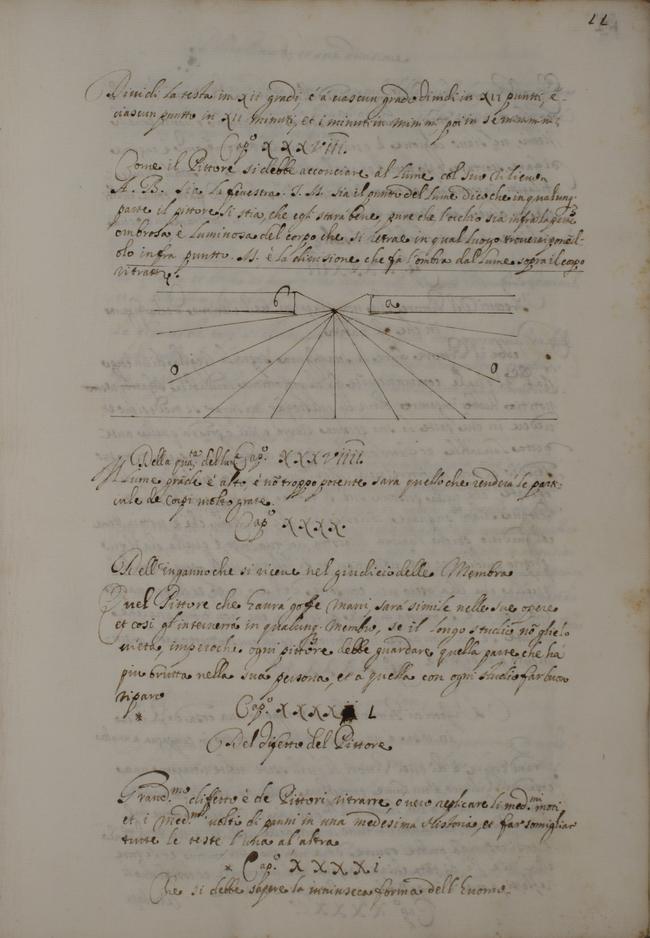 11
Dividi la testa in XII gradi, é a ciascun grado dividi in XII puntti, é
ciascun puntto in XII minuti, et i minuti in minimi poi in semiminimi.
Cap.º XXXVIII.
Come il Pittore si debbe acconciare al Lume col suo rilieuo
A. B. sia la fenestra. M. sia il puntto del lume dico che in qualunq.
parte il pittore si stia, che egli stara bene pure che l'occhio sia infra la parte
ombrosa, é luminosa del corpo che si retrae in qual luogo trouerai ponendo
lo infra puntto. M. è la diuisione che fa l'ombra dal lume sopra il corpo
ritratto.
b a
o o
Della qua.tà del lume Cap.º XXXVIIII.
Il Lume grāde é alto é nō troppo potente sara quello che renderà le parti-
cule de corpi molto grate.
Cap.º XXXX.
Dell'inganno che si riceue nel giudicio delle Membra
Quel Pittore che haurà goffe mani, sarà simile nelle sue opere
et cosi gl'interuerrà in qualunq. membro, se il longo studio nō glielo
uieta, imperoche ogni pittore debbe guardare quella parte che hà
piu brutta nella sua persona, et à quella con ogni studio far buon
riparo
* Cap.º XXXX L
Del difetto del Pittore
Grand.mo diffetto è de Pittori ritrarre, o uero replicare li med.mi moti
et i med.mi uolti di panni in una medesima Historia, et far somigliar
tutte le teste l'una al'altra
* Cap.º XXXXi
Che si debbe sapere la intrinseca forma dell'huomo.